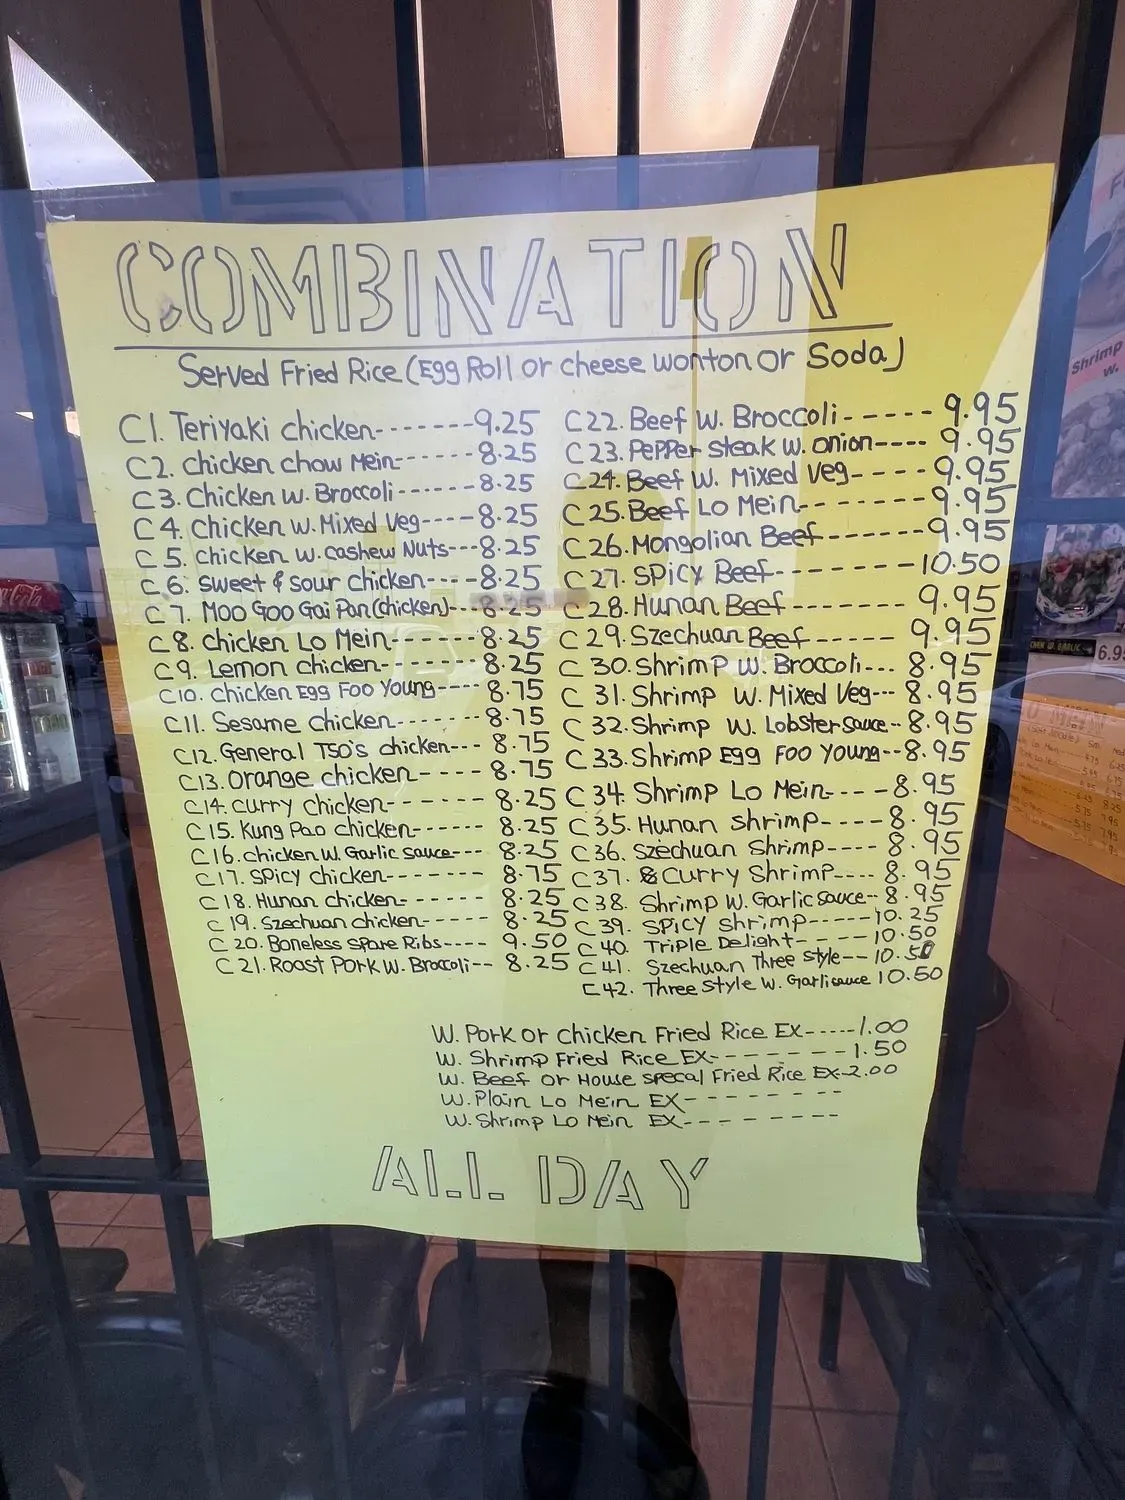 COMBINATION
Served Fried Rice (Egg Roll or cheese wonton or Soda)
C1. Teriyaki chicken-------9.25
C2. chicken chow Mein------8.25
C3. Chicken w. Broccoli------8.25
C4. Chicken w. Mixed Veg----8.25
C5. chicken w. cashew Nuts---8.25
C6. sweet & sour chicken----8.25
C7. Moo Goo Gai Pan(chicken)---8.25
C8. chicken Lo Mein-------8.25
C9. Lemon chicken-------8.25
C10. chicken Egg Foo Young----8.75
C11. Sesame chicken-------8.75
C12. General TSO's chicken---8.75
C13. orange chicken----8.75
C14. curry chicken------8.25
C15. Kung Pao chicken------8.25
C16. chicken w. Garlic sauce---8.25
C17. SPicy chicken-------8.75
C18. Hunan chicken------8.25
C19. Szechuan chicken-----8.25
C20. Boneless spare Ribs----9.50
C21. Roast Pork w. Broccoli--8.25
C22. Beef w. Broccoli-----9.95
C23. PePPer steak w. onion----9.95
C24. Beef w. Mixed Veg----9.95
C25. Beef Lo Mein-------9.95
C26. Mongolian Beef------9.95
C27. SPicy Beef--------10.50
C28. Hunan Beef-------9.95
C29. Szechuan Beef-----9.95
C30. ShrimP w. Broccoli...8.95
C31. Shrimp w. Mixed Veg---8.95
C32. Shrimp w. Lobster sauce--8.95
C33. Shrimp Egg Foo Young--8.95
C34. Shrimp Lo Mein----8.95
C35. Hunan shrimp----8.95
C36. Szechuan Shrimp----8.95
C37. Curry Shrimp----8.95
C38. Shrimp w. Garlic sauce--8.95
C39. SPicy shrimp-----10.25
C40. Triple Delight-----10.50
C41. Szechuan Three style--10.50
C42. Three style w. Garlic sauce 10.50
W. Pork or chicken Fried Rice EX-----1.00
W. Shrimp Fried Rice EX-------1.50
W. Beef or House specal Fried Rice EX-2.00
W. Plain Lo Mein EX--------
W. Shrimp Lo Mein EX--------
ALL DAY
Coca-Cola
Shrimp
w.
6.9